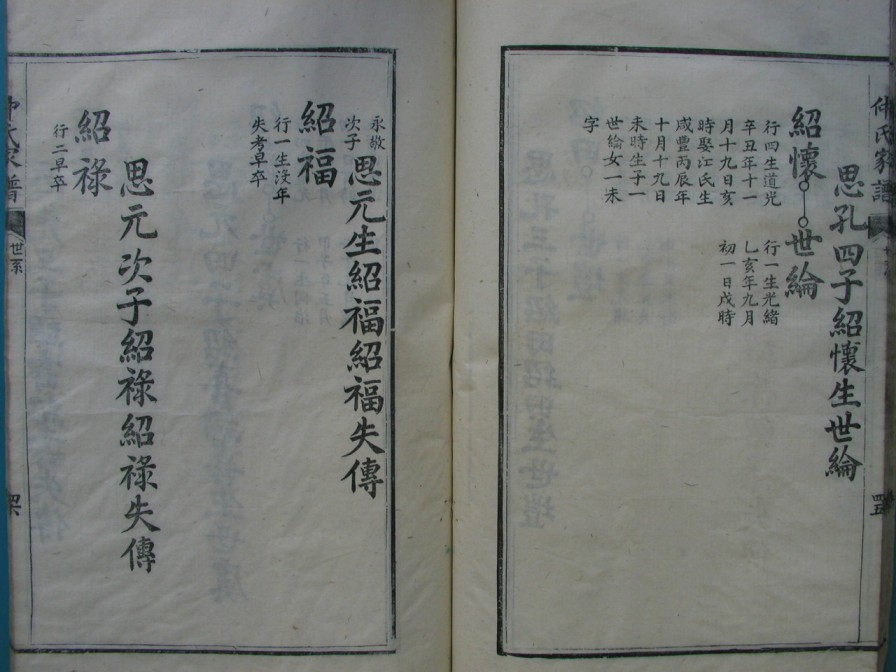 仲氏家譜
思孔四子紹懷生世綸
紹懷
世綸
行四生道光
辛丑年十一
月十九日亥
時娶江氏生
咸豐丙辰年
十月十九日
未時生子一
世綸女一未
字
行一生光緒
乙亥年九月
初一日戌時
永敖
次子
思元生紹福紹福失傳
紹福
行一生沒年
失考早卒
思元次子紹祿紹祿失傳
紹祿
行二早卒
仲氏家譜
世系